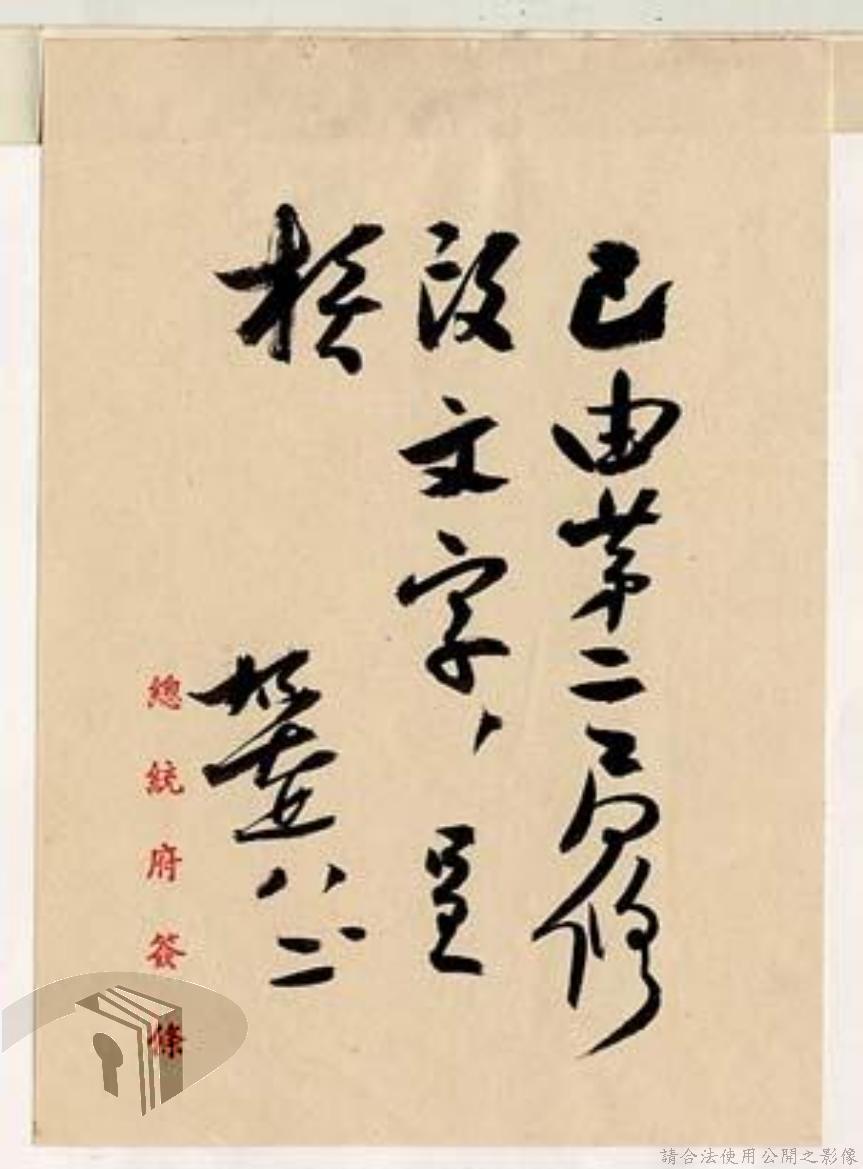 已由第二局修
改文字，呈
核
八二
總統府簽條
請合法使用公開之影像